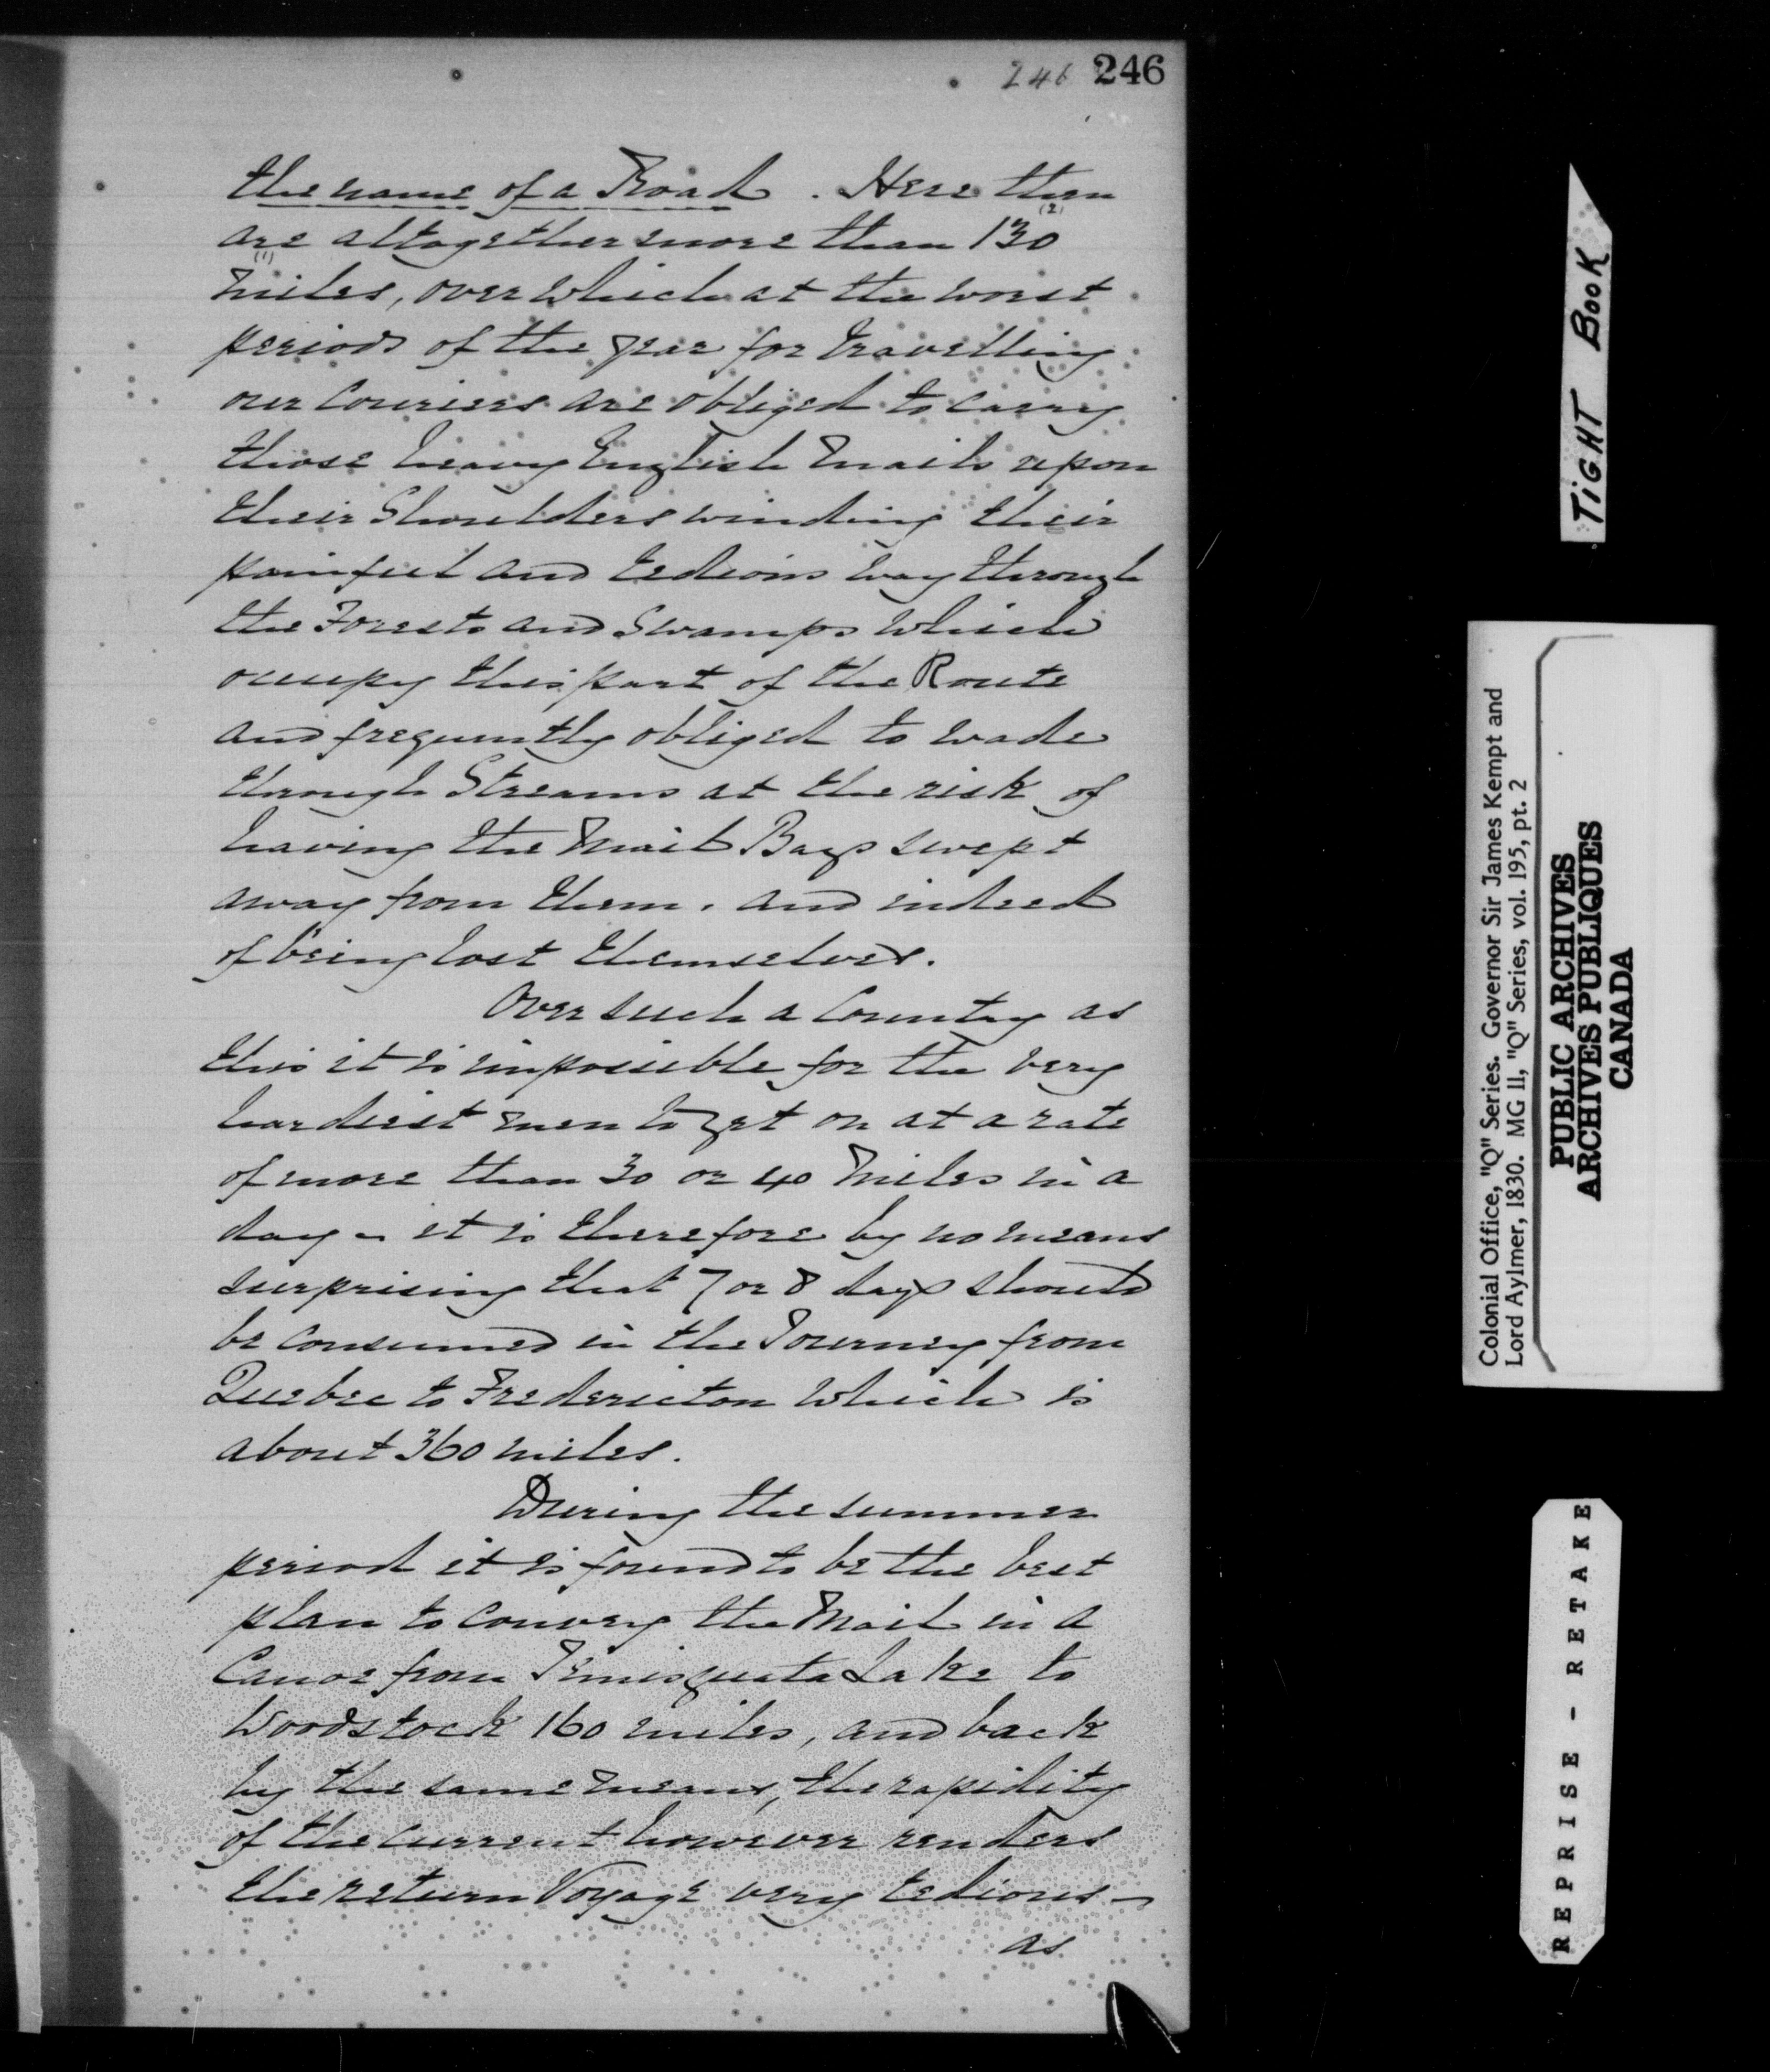 246 246
the name of a Road. Here then
are altogether more than 130
(2)
(1)
miles, over which at the worst
periods of the year for travelling
our Couriers are obliged to carry
those heavy English Mails upon
their Shoulders winding their
painful and tedious way through
the Forests and Swamps which
occupy this part of the Route
and frequently obliged to wade
through Streams at the risk of
having the Mail Bags swept
away from them, and indeed
of being lost themselves.
Over such a Country as
this it is impossible for the very
hardiest men to get on at a rate
of more than 30 or 40 Miles in a
day – it is therefore by no means
surprising that 7 or 8 days should
be consumed in the Journey from
Quebec to Fredericton which is
about 360 miles.
During the summer
period it is found to be the best
plan to convey the Mail in a
Canoe from Timisquata Lake to
Woodstock 160 miles, and back
by the same means, the rapidity
of the current however renders
the return Voyage very tedious –
as
TIGHT BOOK
Colonial Office, "Q" Series. Governor Sir James Kempt and
Lord Aylmer, 1830. MG 11, "Q" Series, vol. 195, pt. 2
PUBLIC ARCHIVES
ARCHIVES PUBLIQUES
CANADA
REPRISE - RETAKE